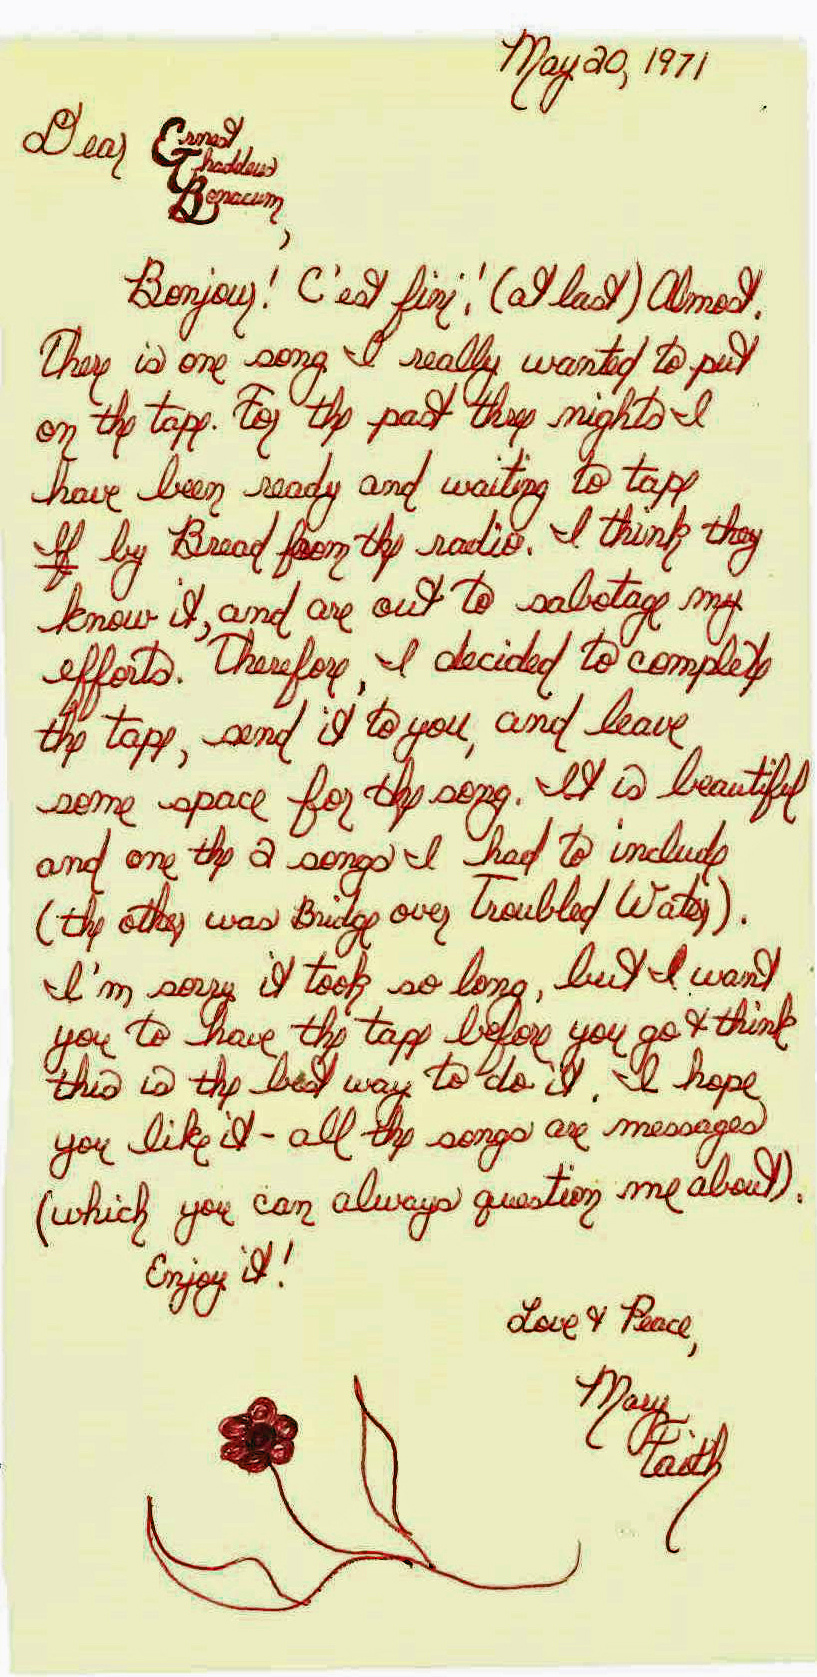 May 20, 1971
Dear Ernest
Thaddeus
Bonacum,
Bonjour! C'est fini! (at last) Almost.
There is one song I really wanted to put
on the tape. For the past three nights I
have been ready and waiting to tape
If by Bread from the radio. I think they
know it, and are out to sabotage my
efforts. Therefore, I decided to complete
the tape, send it to you, and leave
some space for the song. It is beautiful
and one the 2 songs I had to include
(the other was Bridge over Troubled Water).
I'm sorry it took so long, but I want
you to have the tape before you go & think
this is the best way to do it. I hope
you like it - all the songs are messages
(which you can always question me about).
Enjoy it!
Love & Peace,
Mary
Faith